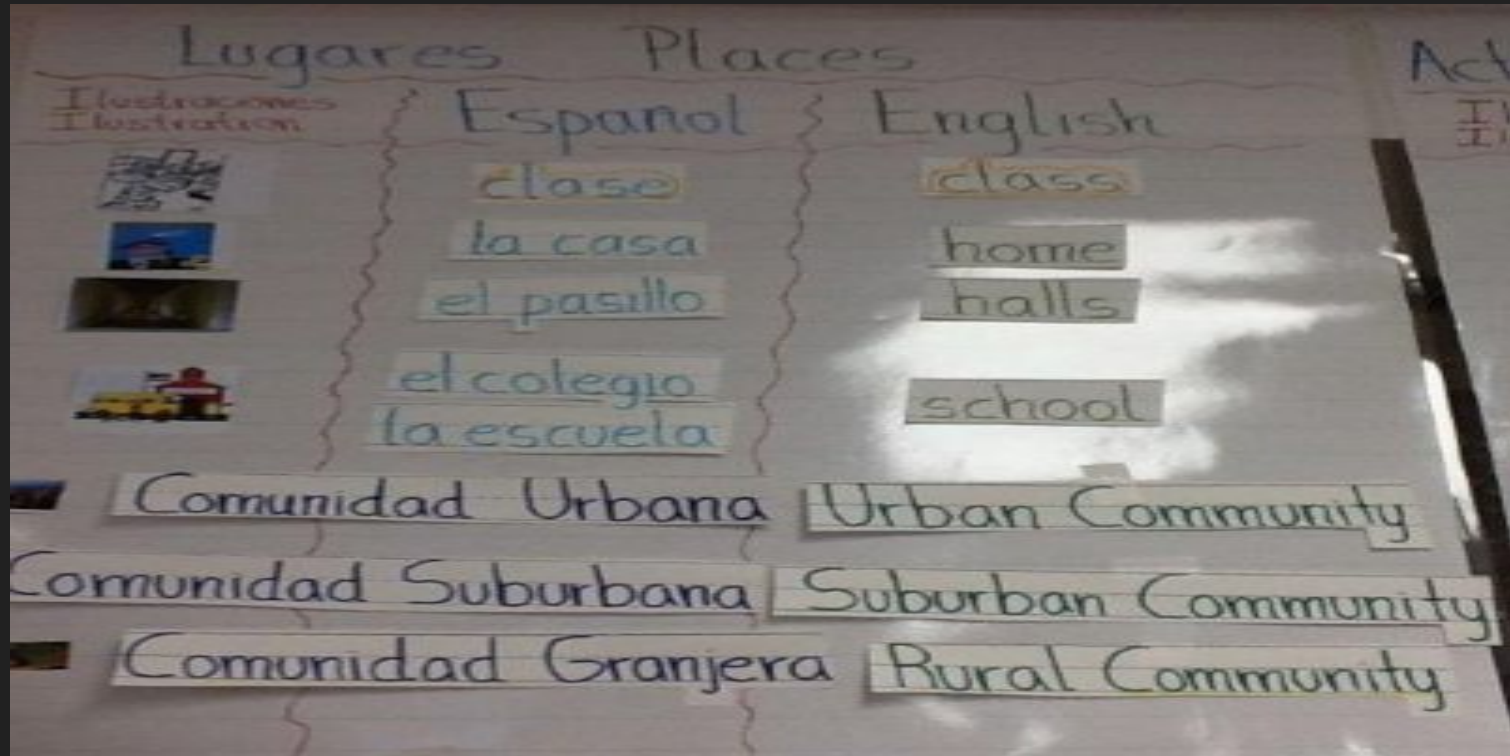 Lugares Places
Ilustraciones Español English
Ilustration
clase class
la casa home
el pasillo halls
el colegio
la escuela school
Comunidad Urbana Urban Community
Comunidad Suburbana Suburban Community
Comunidad Granjera Rural Community